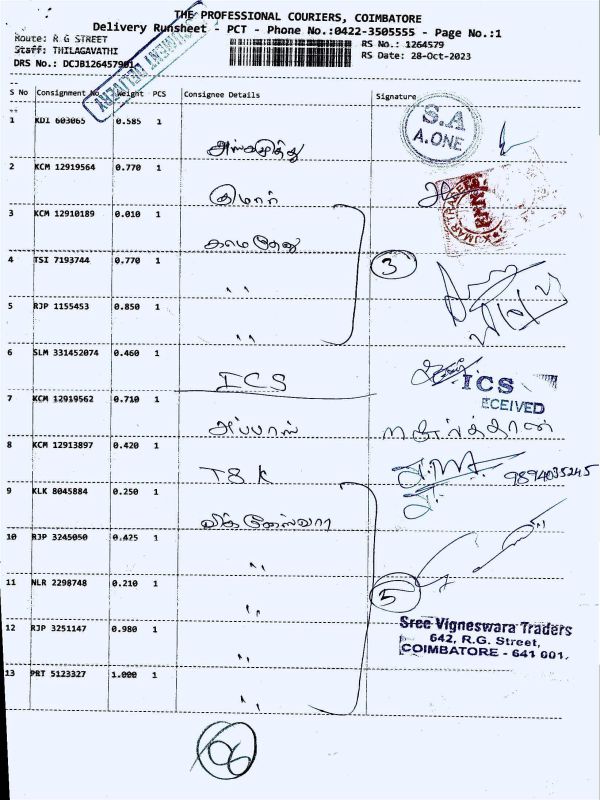 THE PROFESSIONAL COURIERS, COIMBATORE
Delivery Runsheet - PCT - Phone No.:0422-3505555 - Page No.:1
Route: R G STREET
Staff: THILAGAVATHI
RS No.: 1264579
DRS No.: DCJB126457901
RS Date: 28-Oct-2023
DELIVERY
S No Consignment No Weight PCS Consignee Details Signature
1 KDI 603065 0.585 1
S.A
A.ONE
2 KCM 12919564 0.770 1 குமார்
KUMAR TRADERS
3 KCM 12910189 0.010 1 காமதேனு
4 TSI 7193744 0.770 1 ,,
3
5 RJP 1155453 0.850 1 ,,
6 SLM 331452074 0.460 1 ICS
ICS
7 KCM 12919562 0.710 1 அப்பாஸ்
ECEIVED
8 KCM 12913897 0.420 1 TSK
9894035245
9 KLK 8045884 0.250 1 விக்னேஸ்வரா
10 RJP 3245050 0.425 1 ,,
11 NLR 2298748 0.210 1 ,,
5
12 RJP 3251147 0.980 1 ,,
Sree Vigneswara Traders
642, R.G. Street,
COIMBATORE - 641 001.
13 PRT 5123327 1.000 1 ,,
66